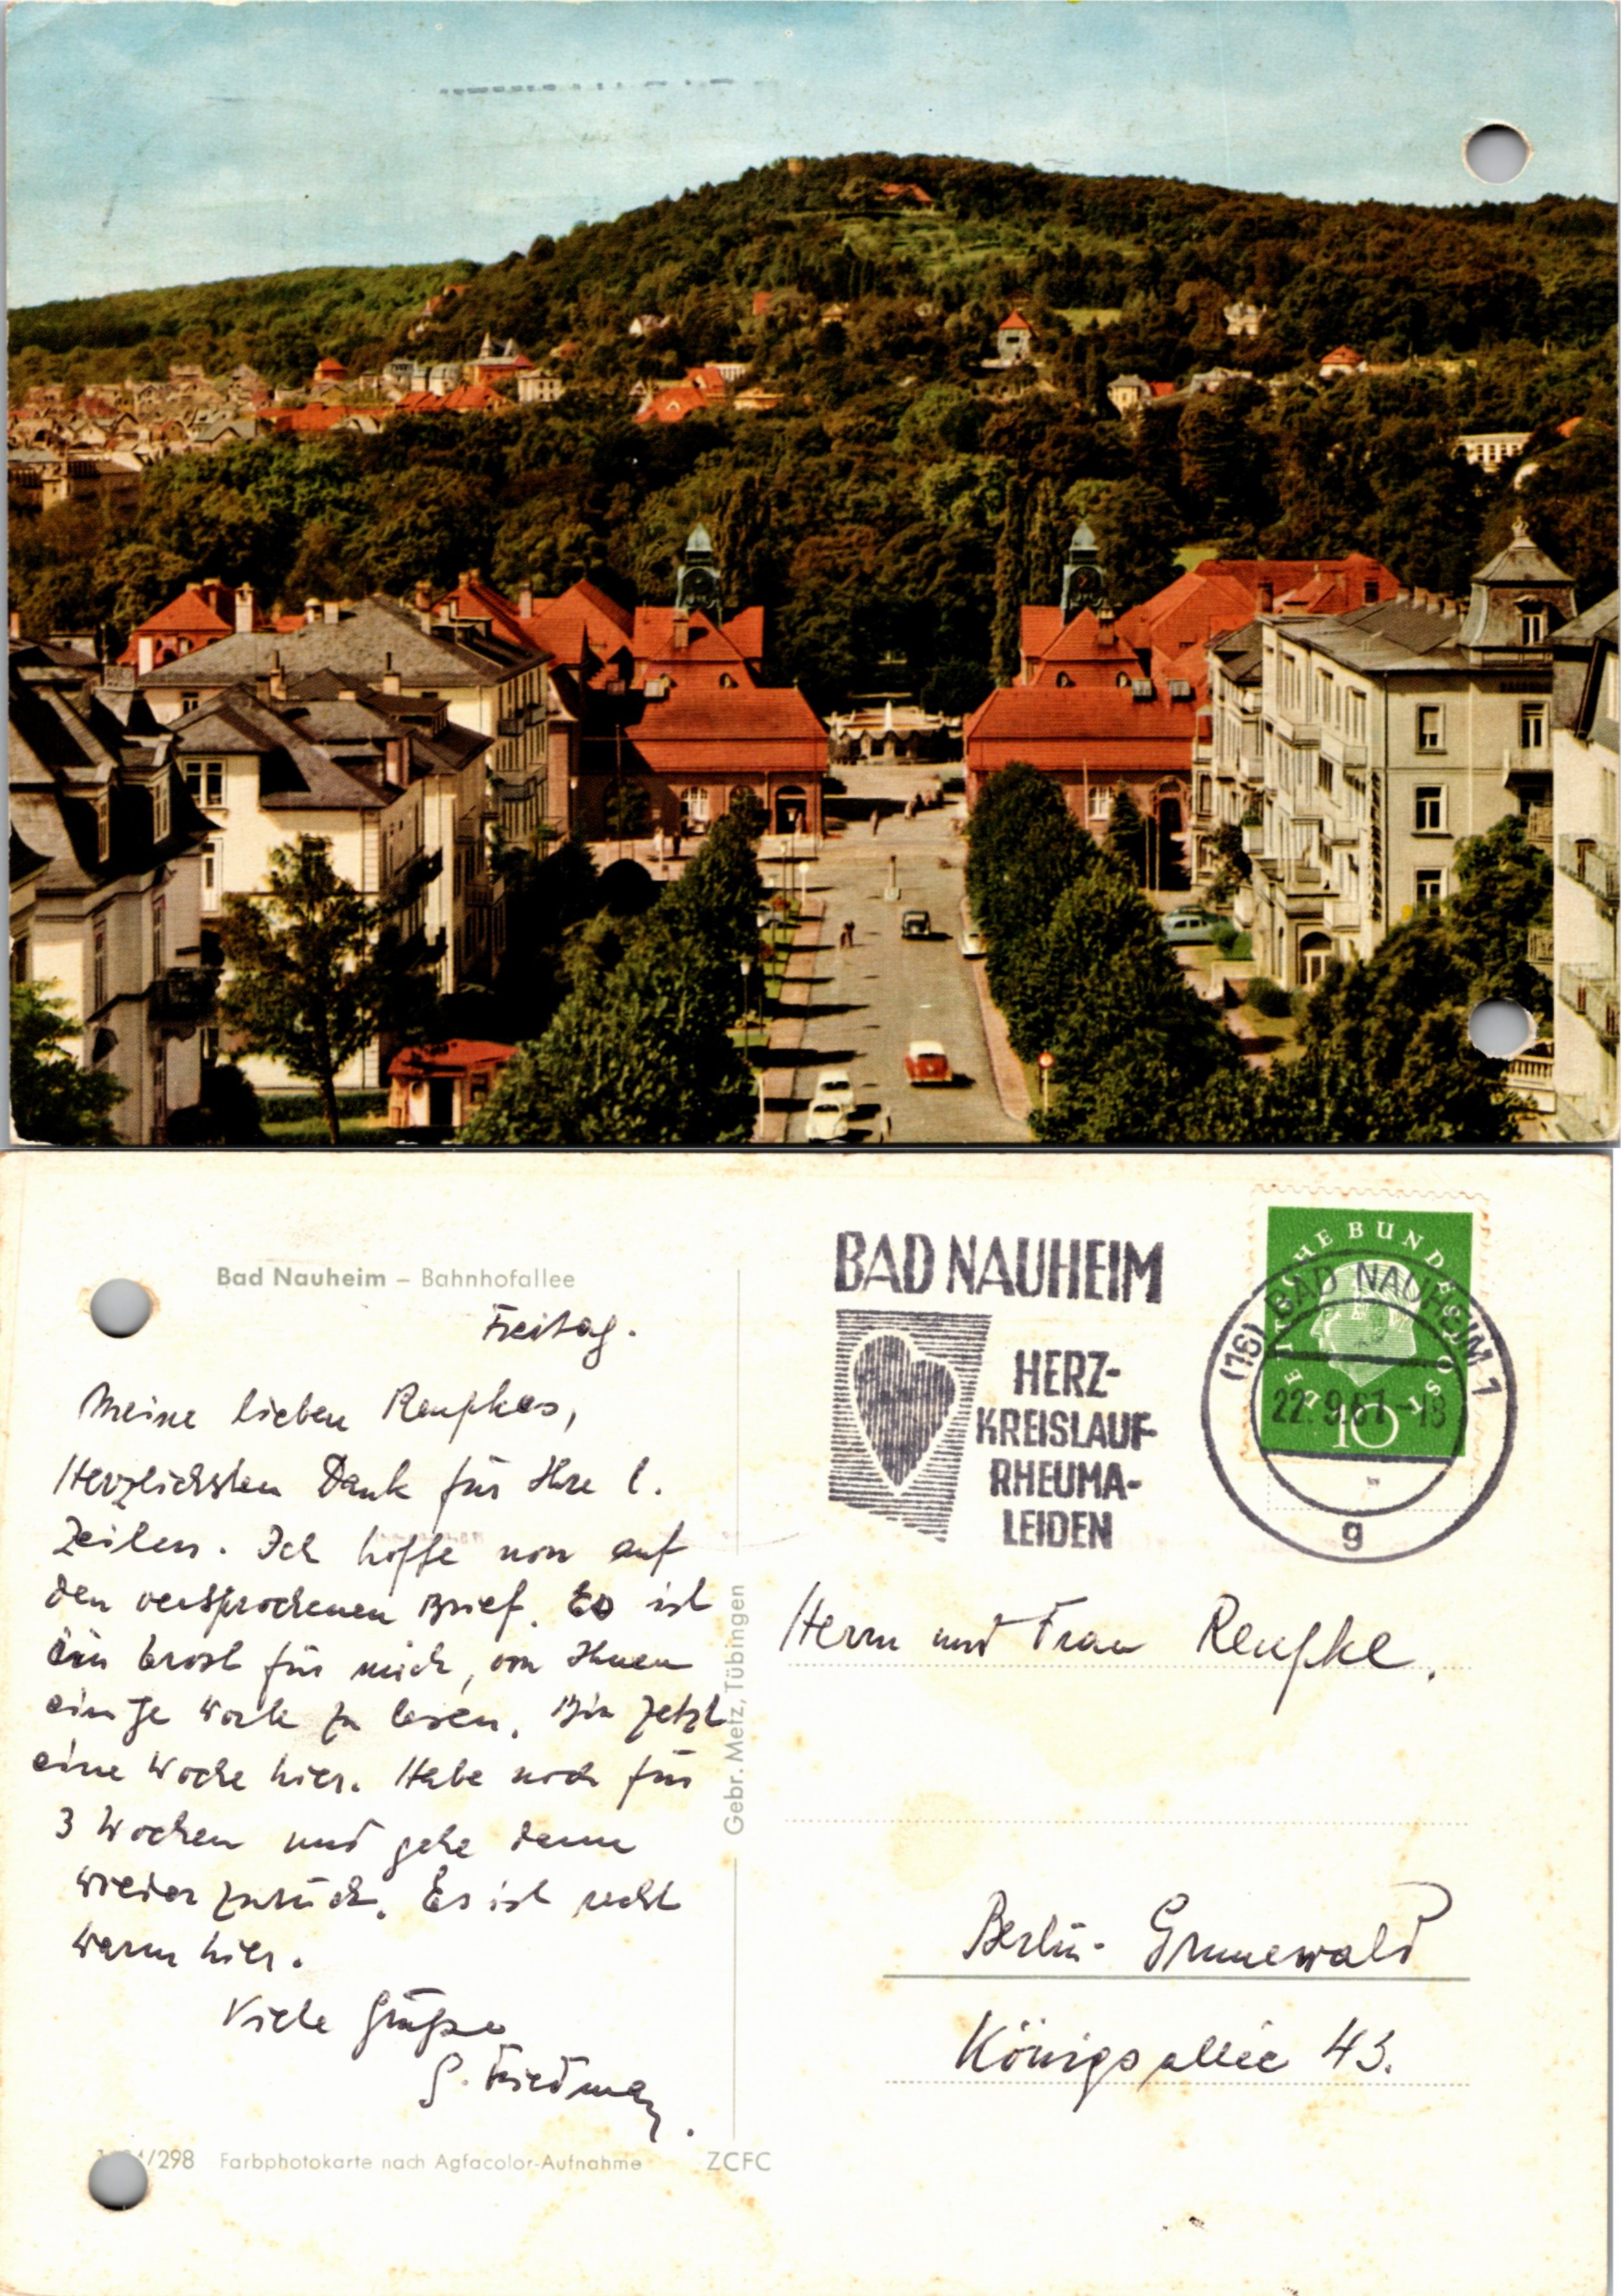 Bad Nauheim – Bahnhofallee
Freitag.
Meine lieben
Herzlichsten Dank für Ihre l.
Zeilen. Ich hoffe nun auf
den versprochenen Brief. Es ist
ein Trost für mich, von Ihnen
einige Worte zu lesen. Bin jetzt
eine Woche hier. Habe noch für
3 Wochen und gehe dann
wieder zurück. Es ist recht
warm hier.
Viele Grüße
/298 Farbphotokarte nach Agfacolor-Aufnahme ZCFC
Gebr. Metz, Tübingen
BAD NAUHEIM
HERZ-
KREISLAUF-
RHEUMA-
LEIDEN
DEUTSCHE BUNDESPOST
10
(16) BAD NAUHEIM 1
22.9.61-18
g
Herrn und Frau
Berlin-Grunewald
Königsallee 43.